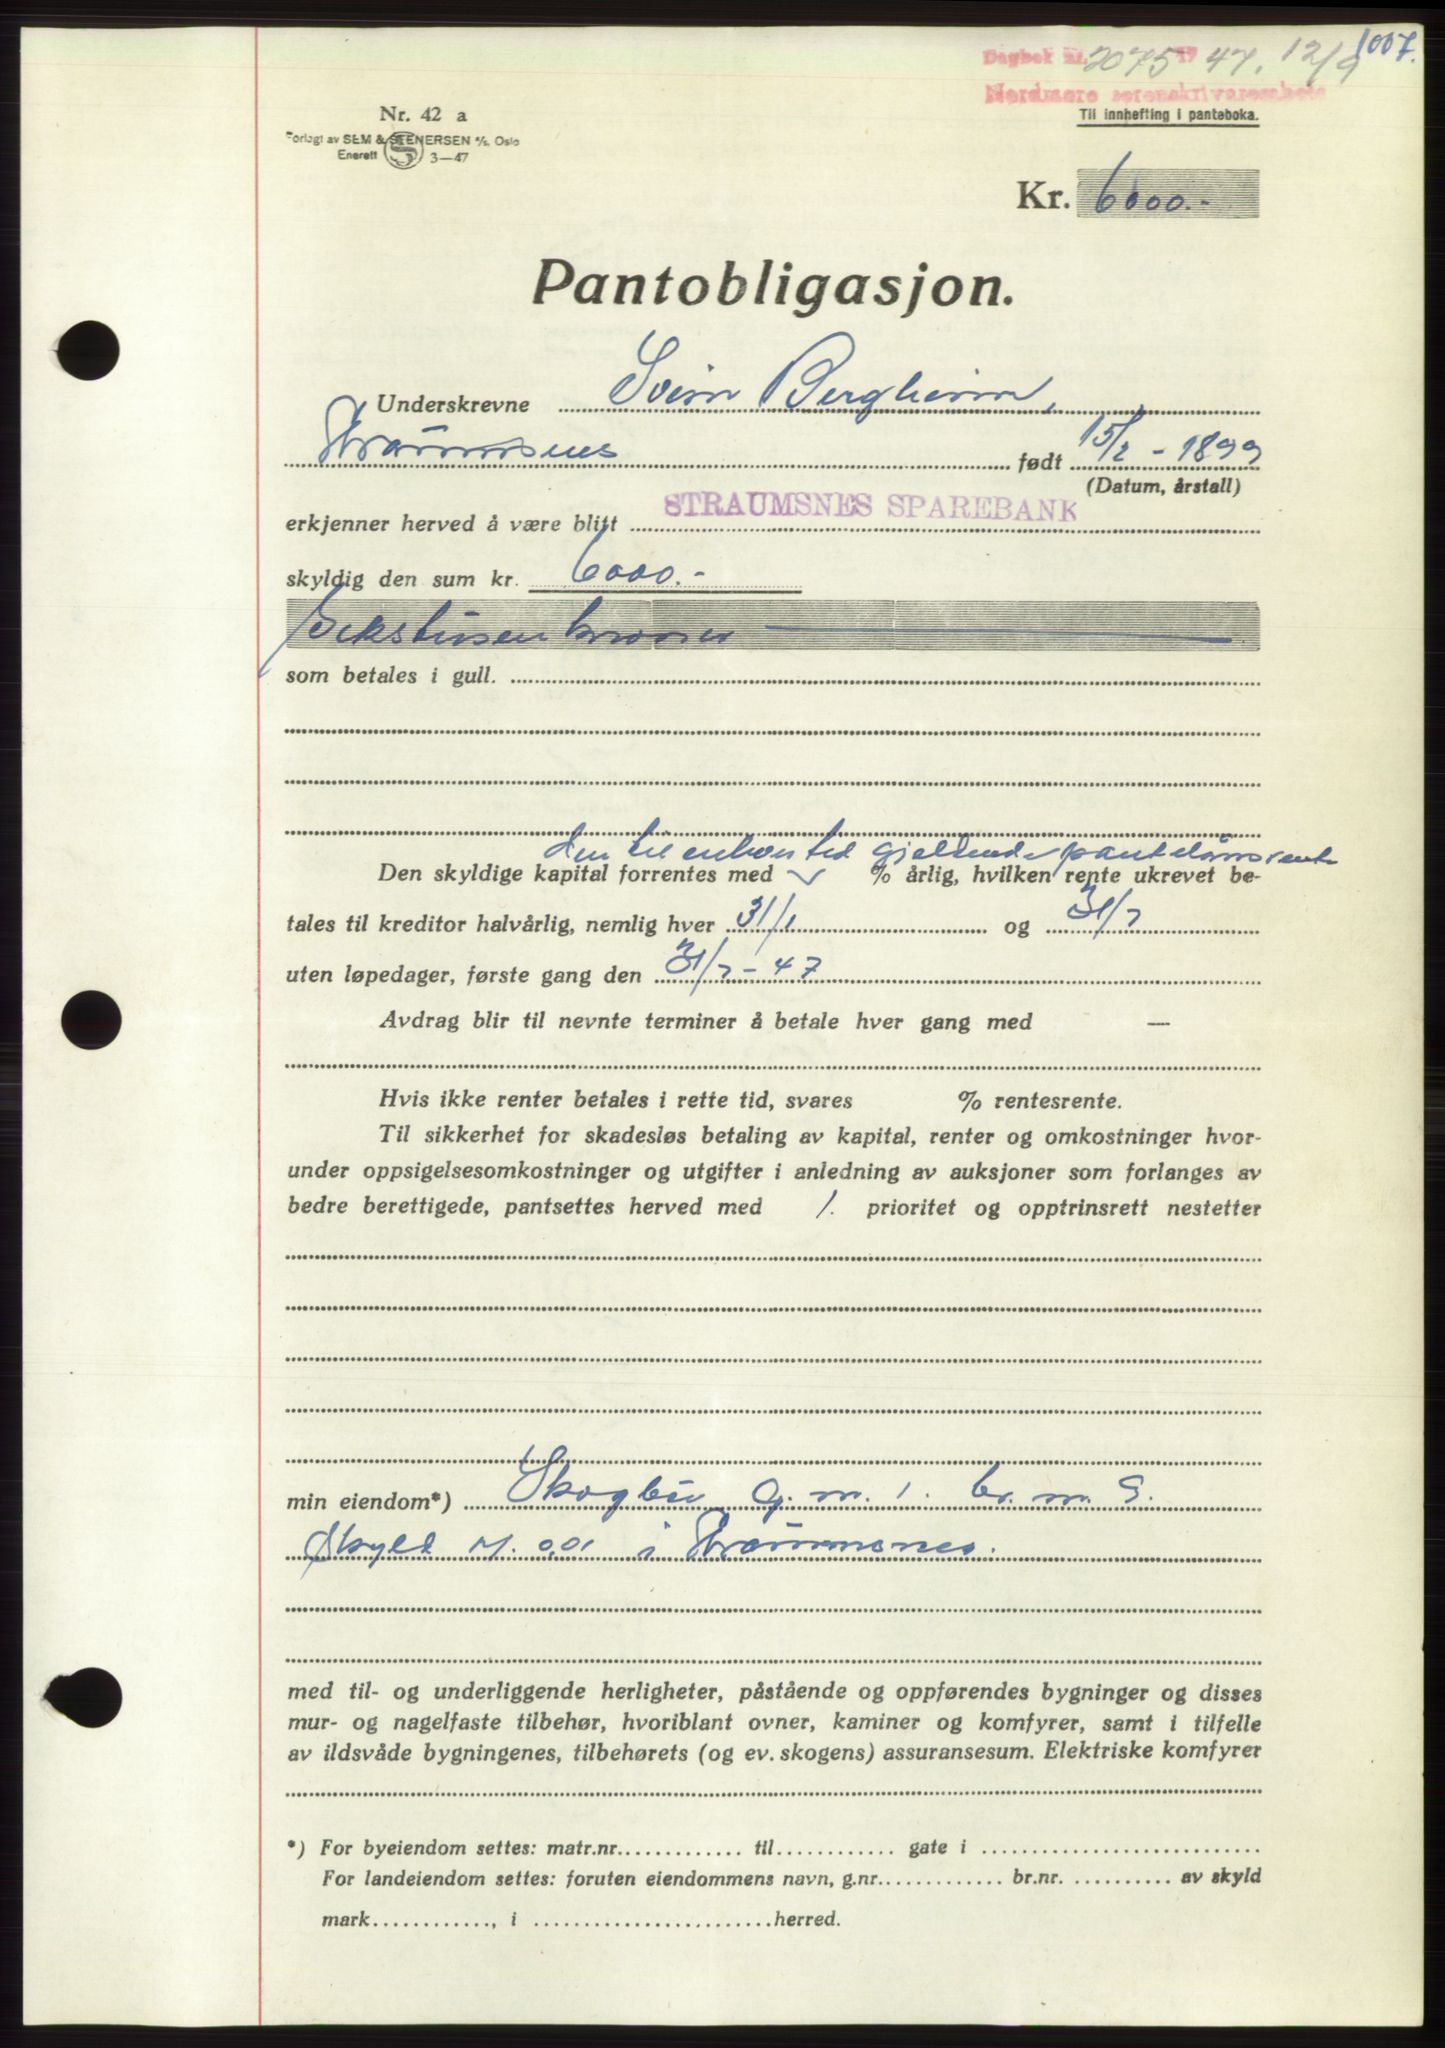 1007.
Dagbok nr. 2075 19 47. 12/9
Nordmøre sorenskrivarembete
Til innhefting i panteboka.
Nr. 42 a
Forlagt av SEM & STENERSEN A/S, Oslo
Enerett 3—47
Kr. 6000.-
Pantobligasjon.
Underskrevne Svein Bergheim,
Straumsnes født 15/2 - 1899
(Datum, årstall)
erkjenner herved å være blitt STRAUMSNES SPAREBANK
skyldig den sum kr. 6000.-
Sekstusen kroner
som betales i gull.
den til enhver tid gjeldende pantelånsrente
Den skyldige kapital forrentes med % årlig, hvilken rente ukrevet be-
tales til kreditor halvårlig, nemlig hver 31/1 og 31/7
uten løpedager, første gang den 31/7 - 47
Avdrag blir til nevnte terminer å betale hver gang med —
Hvis ikke renter betales i rette tid, svares % rentesrente.
Til sikkerhet for skadesløs betaling av kapital, renter og omkostninger hvor-
under oppsigelsesomkostninger og utgifter i anledning av auksjoner som forlanges av
bedre berettigede, pantsettes herved med 1. prioritet og opptrinsrett nestetter
min eiendom*) Skogbu g.nr. 1. br.nr. 9.
Skyld M. 0,01 i Straumsnes.
med til- og underliggende herligheter, påstående og oppførendes bygninger og disses
mur- og nagelfaste tilbehør, hvoriblant ovner, kaminer og komfyrer, samt i tilfelle
av ildsvåde bygningenes, tilbehørets (og ev. skogens) assuransesum. Elektriske komfyrer
*) For byeiendom settes: matr.nr. til gate i
For landeiendom settes: foruten eiendommens navn, g.nr. br.nr. av skyld
mark , i herred.